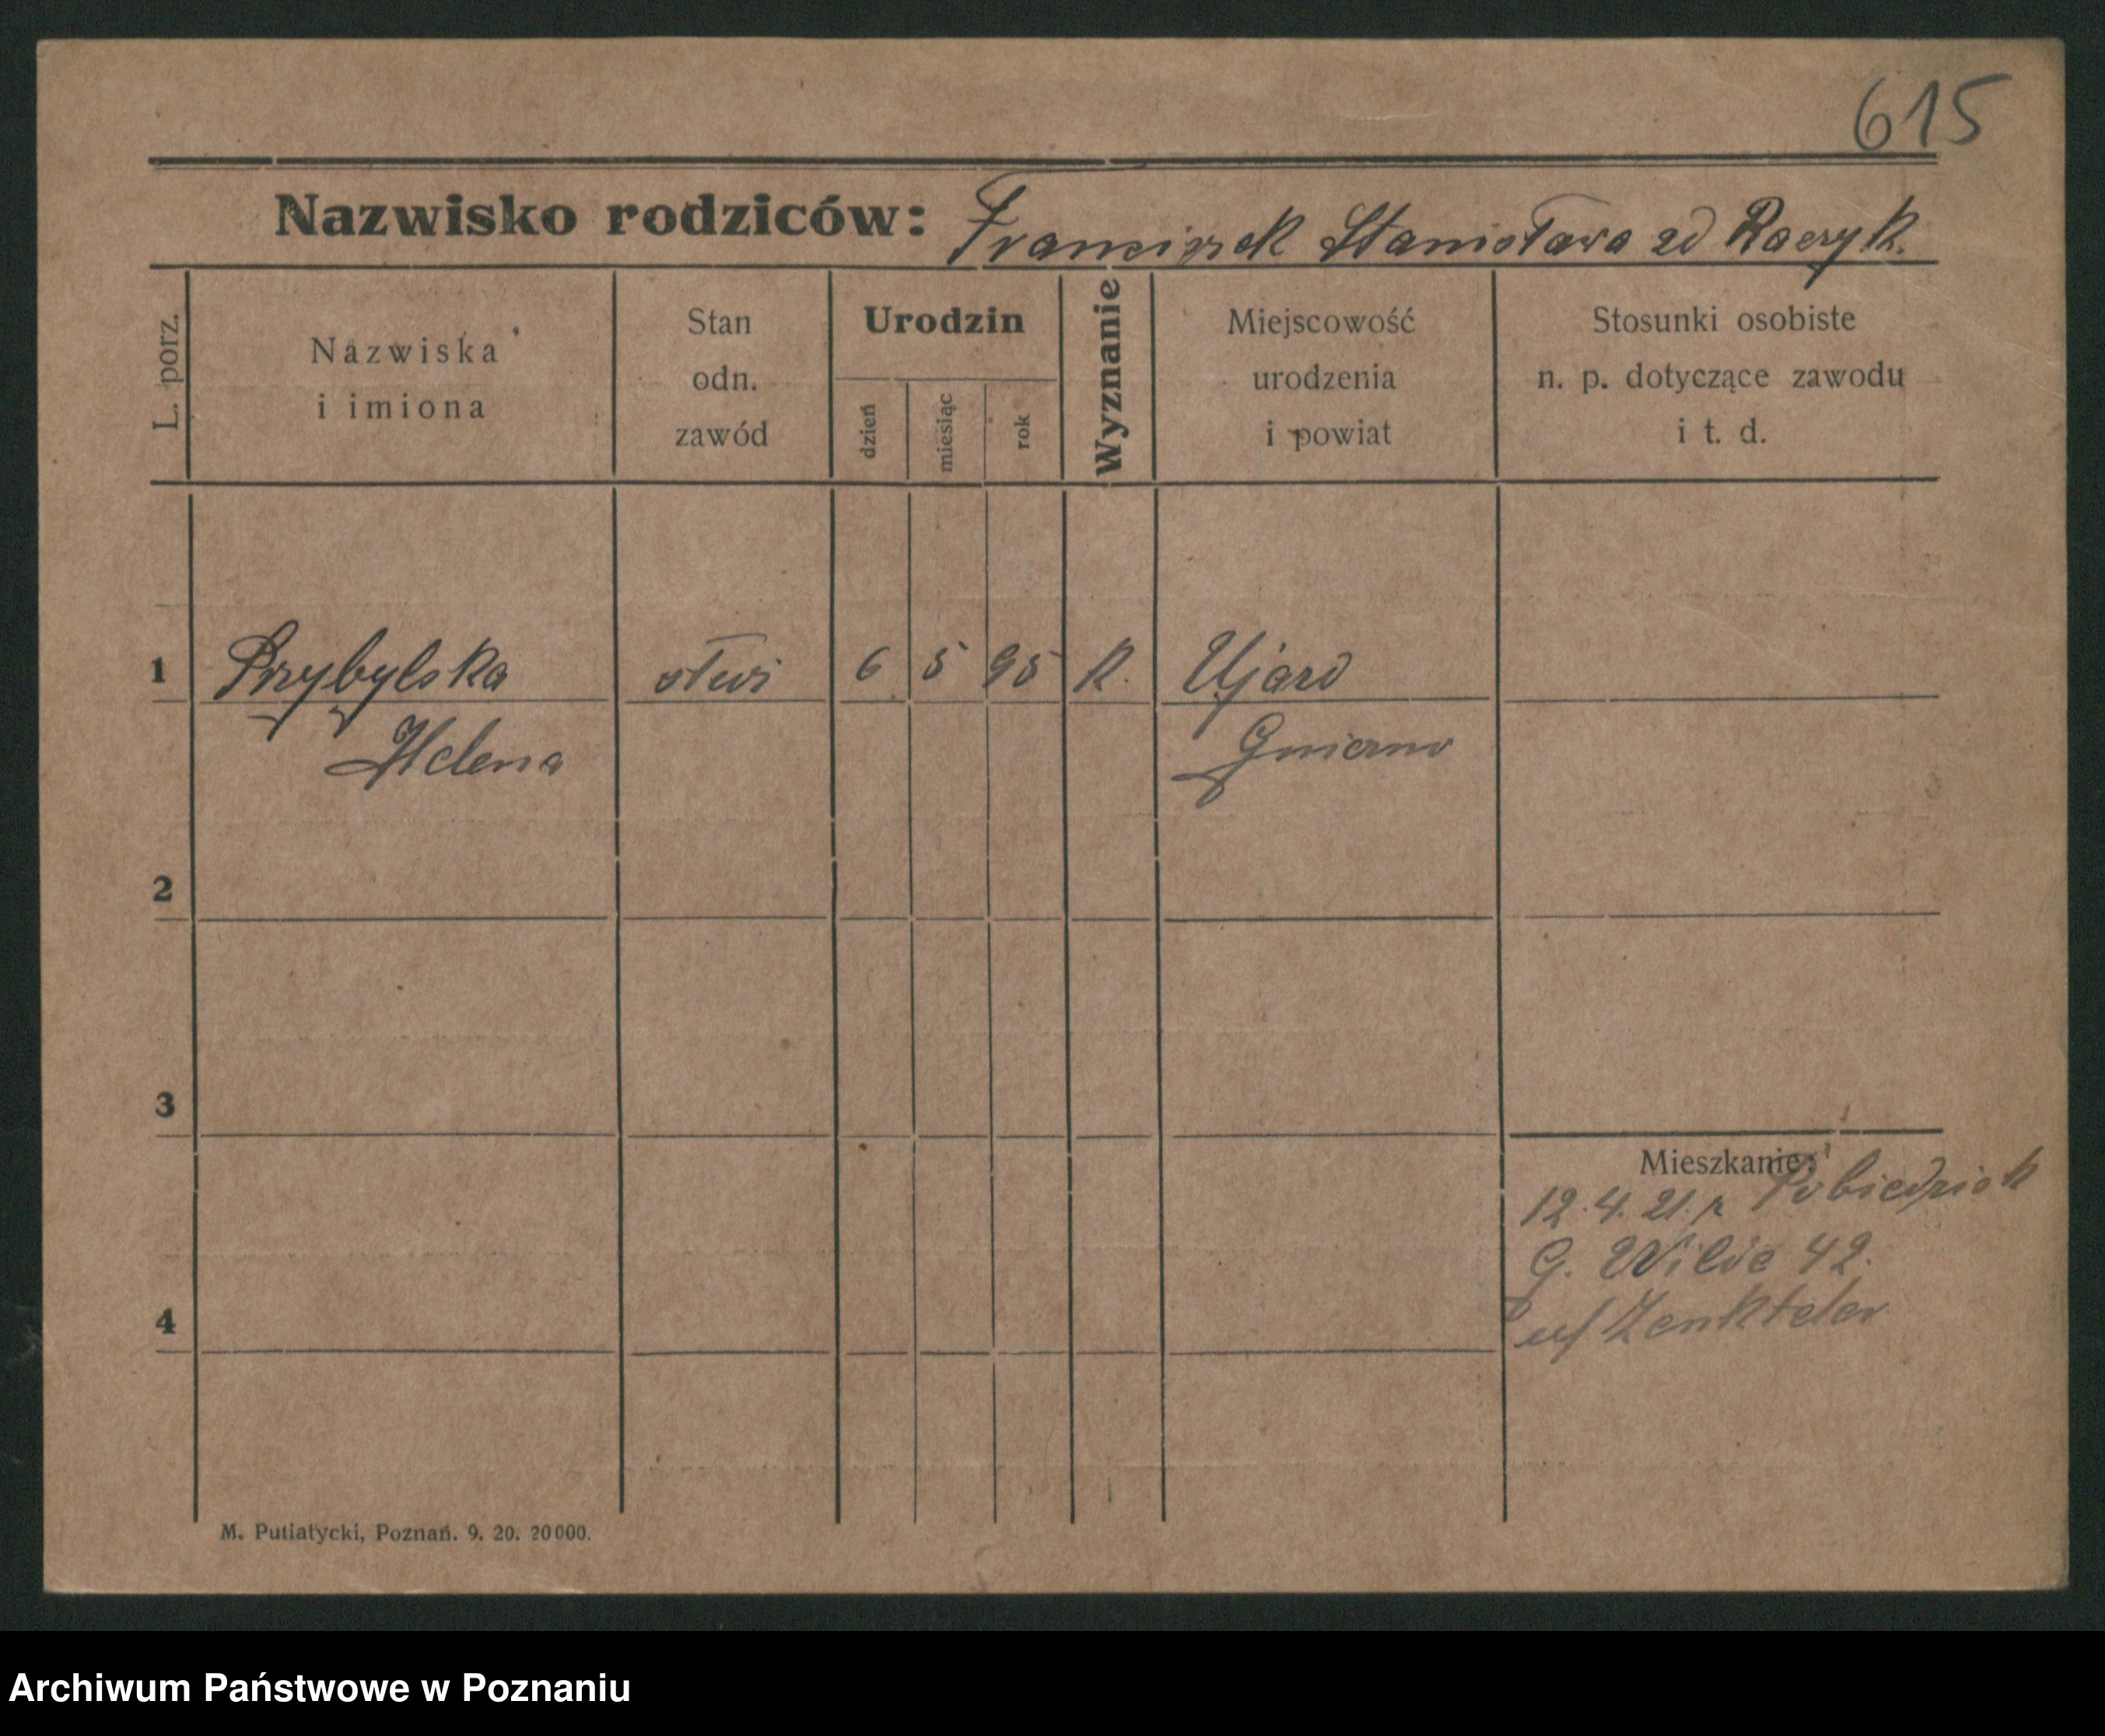 615
Nazwisko rodziców: Franciszek Stanisława zd Raczyk.
L. porz.
Nazwiska i imiona
Stan odn. zawód
Urodzin
dzień
miesiąc
rok
Wyznanie
Miejscowość urodzenia i powiat
Stosunki osobiste n. p. dotyczące zawodu i t. d.
1 Przybylska 6 5 95 K. Ujazd
Helena
2
3
4
Mieszkanie:
12.4.21. z Pobiedzisk
G. Wilda 42.
Zenkteler
M. Putiatycki, Poznań. 9. 20. 20000.
Archiwum Państwowe w Poznaniu